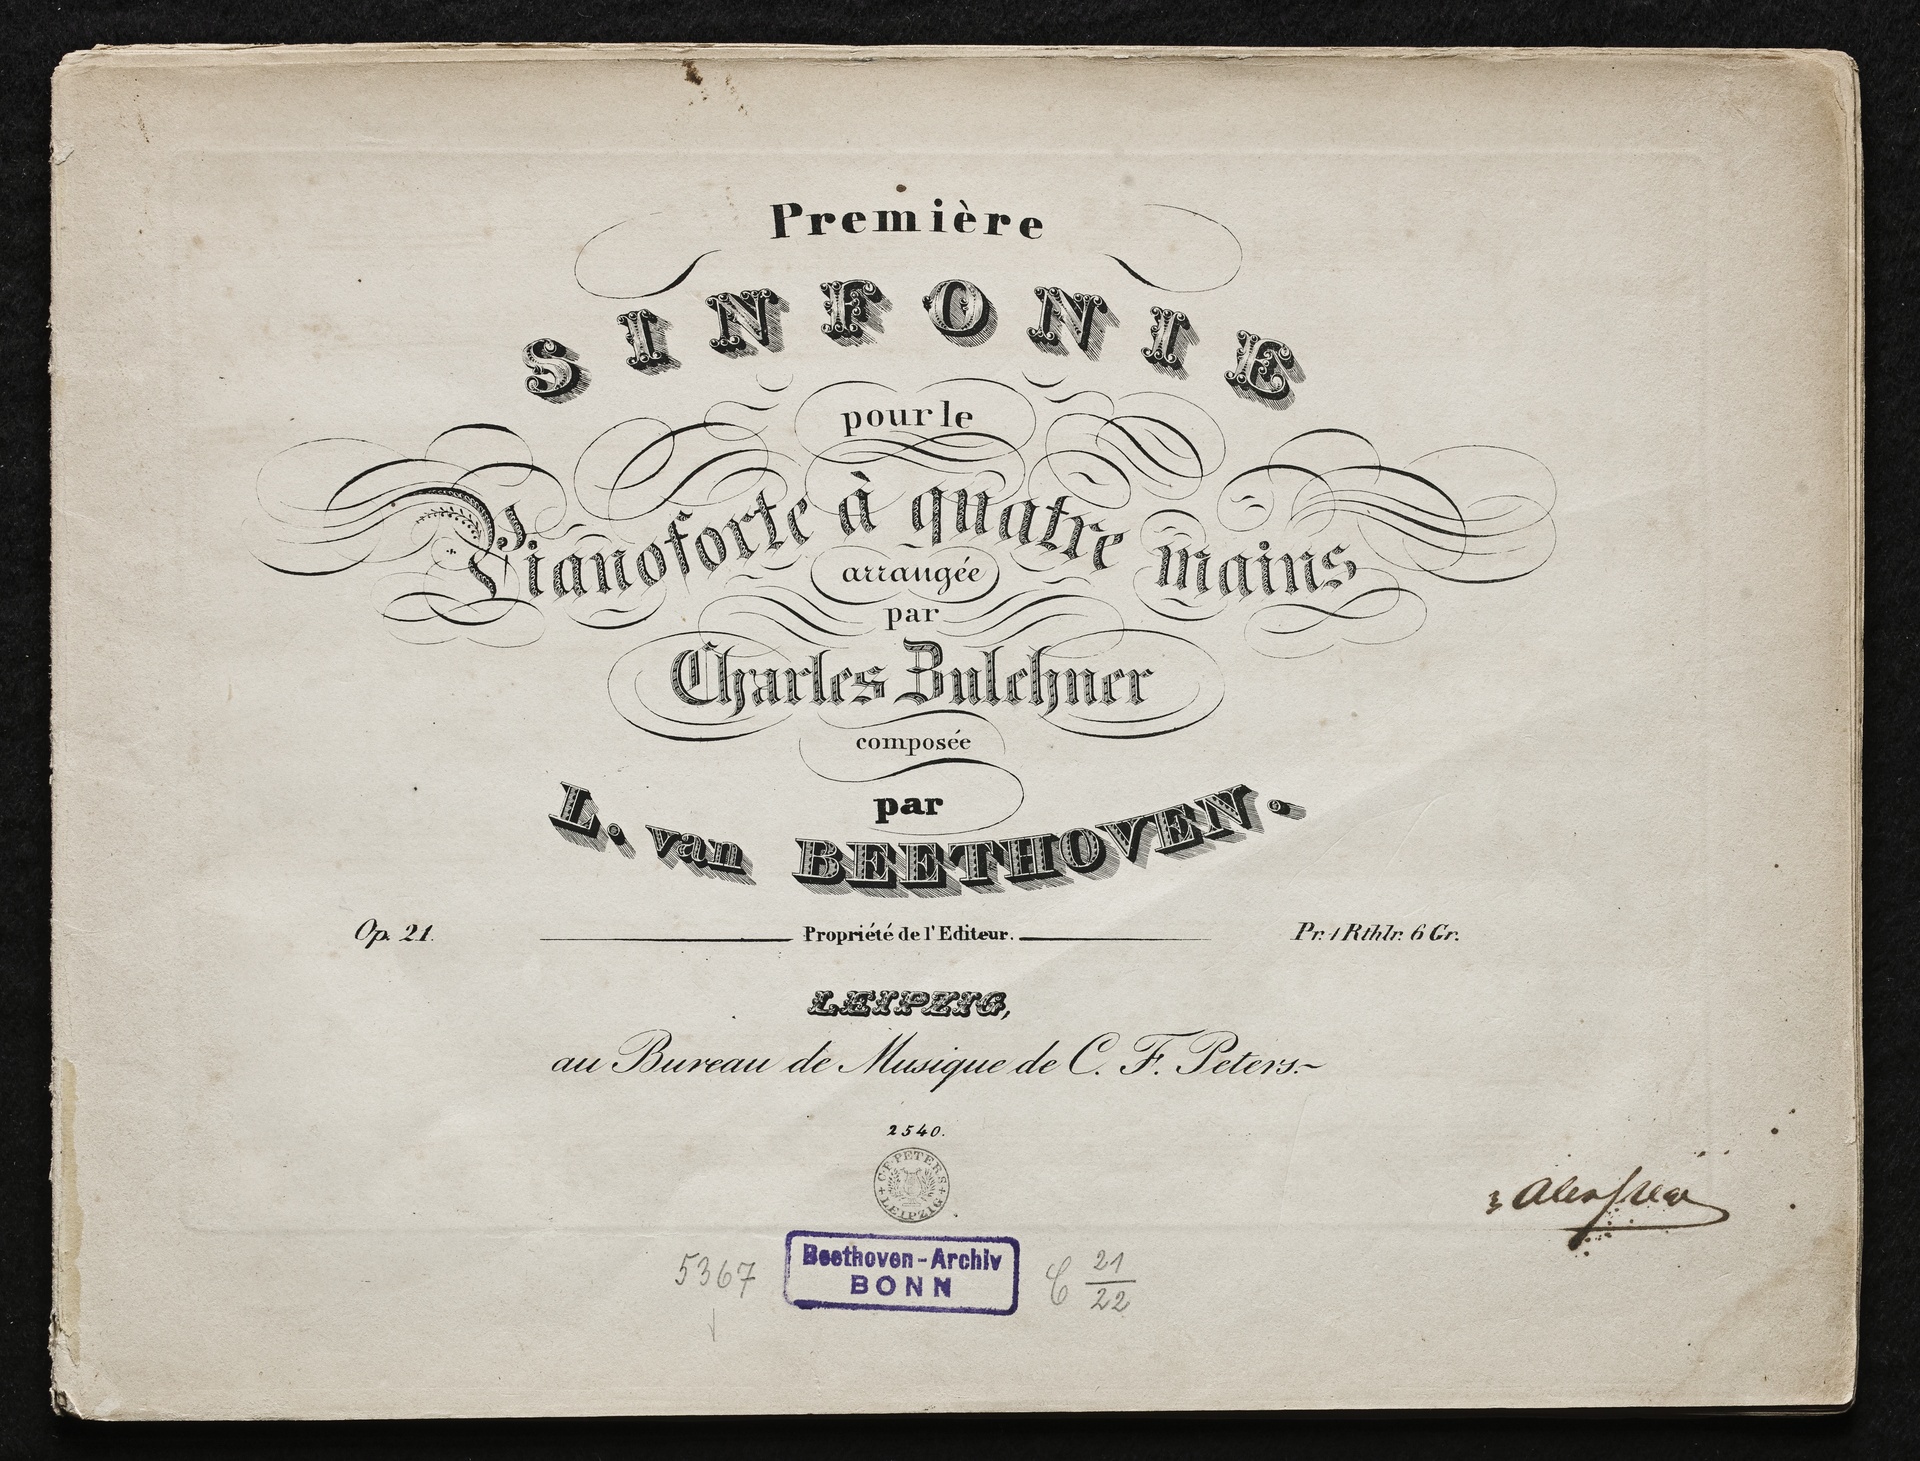 Première
SINFONIE
pour le
Pianoforte à quatre mains
arrangée
par
Charles Zulehner
composée
par
L. van BEETHOVEN.
Op. 21. Propriété de l'Editeur. Pr. 1 Rthlr. 6 Gr.
LEIPZIG,
au Bureau de Musique de C. F. Peters.
2540.
C. F. PETERS
LEIPZIG
5367 Beethoven-Archiv C 21
BONN 22